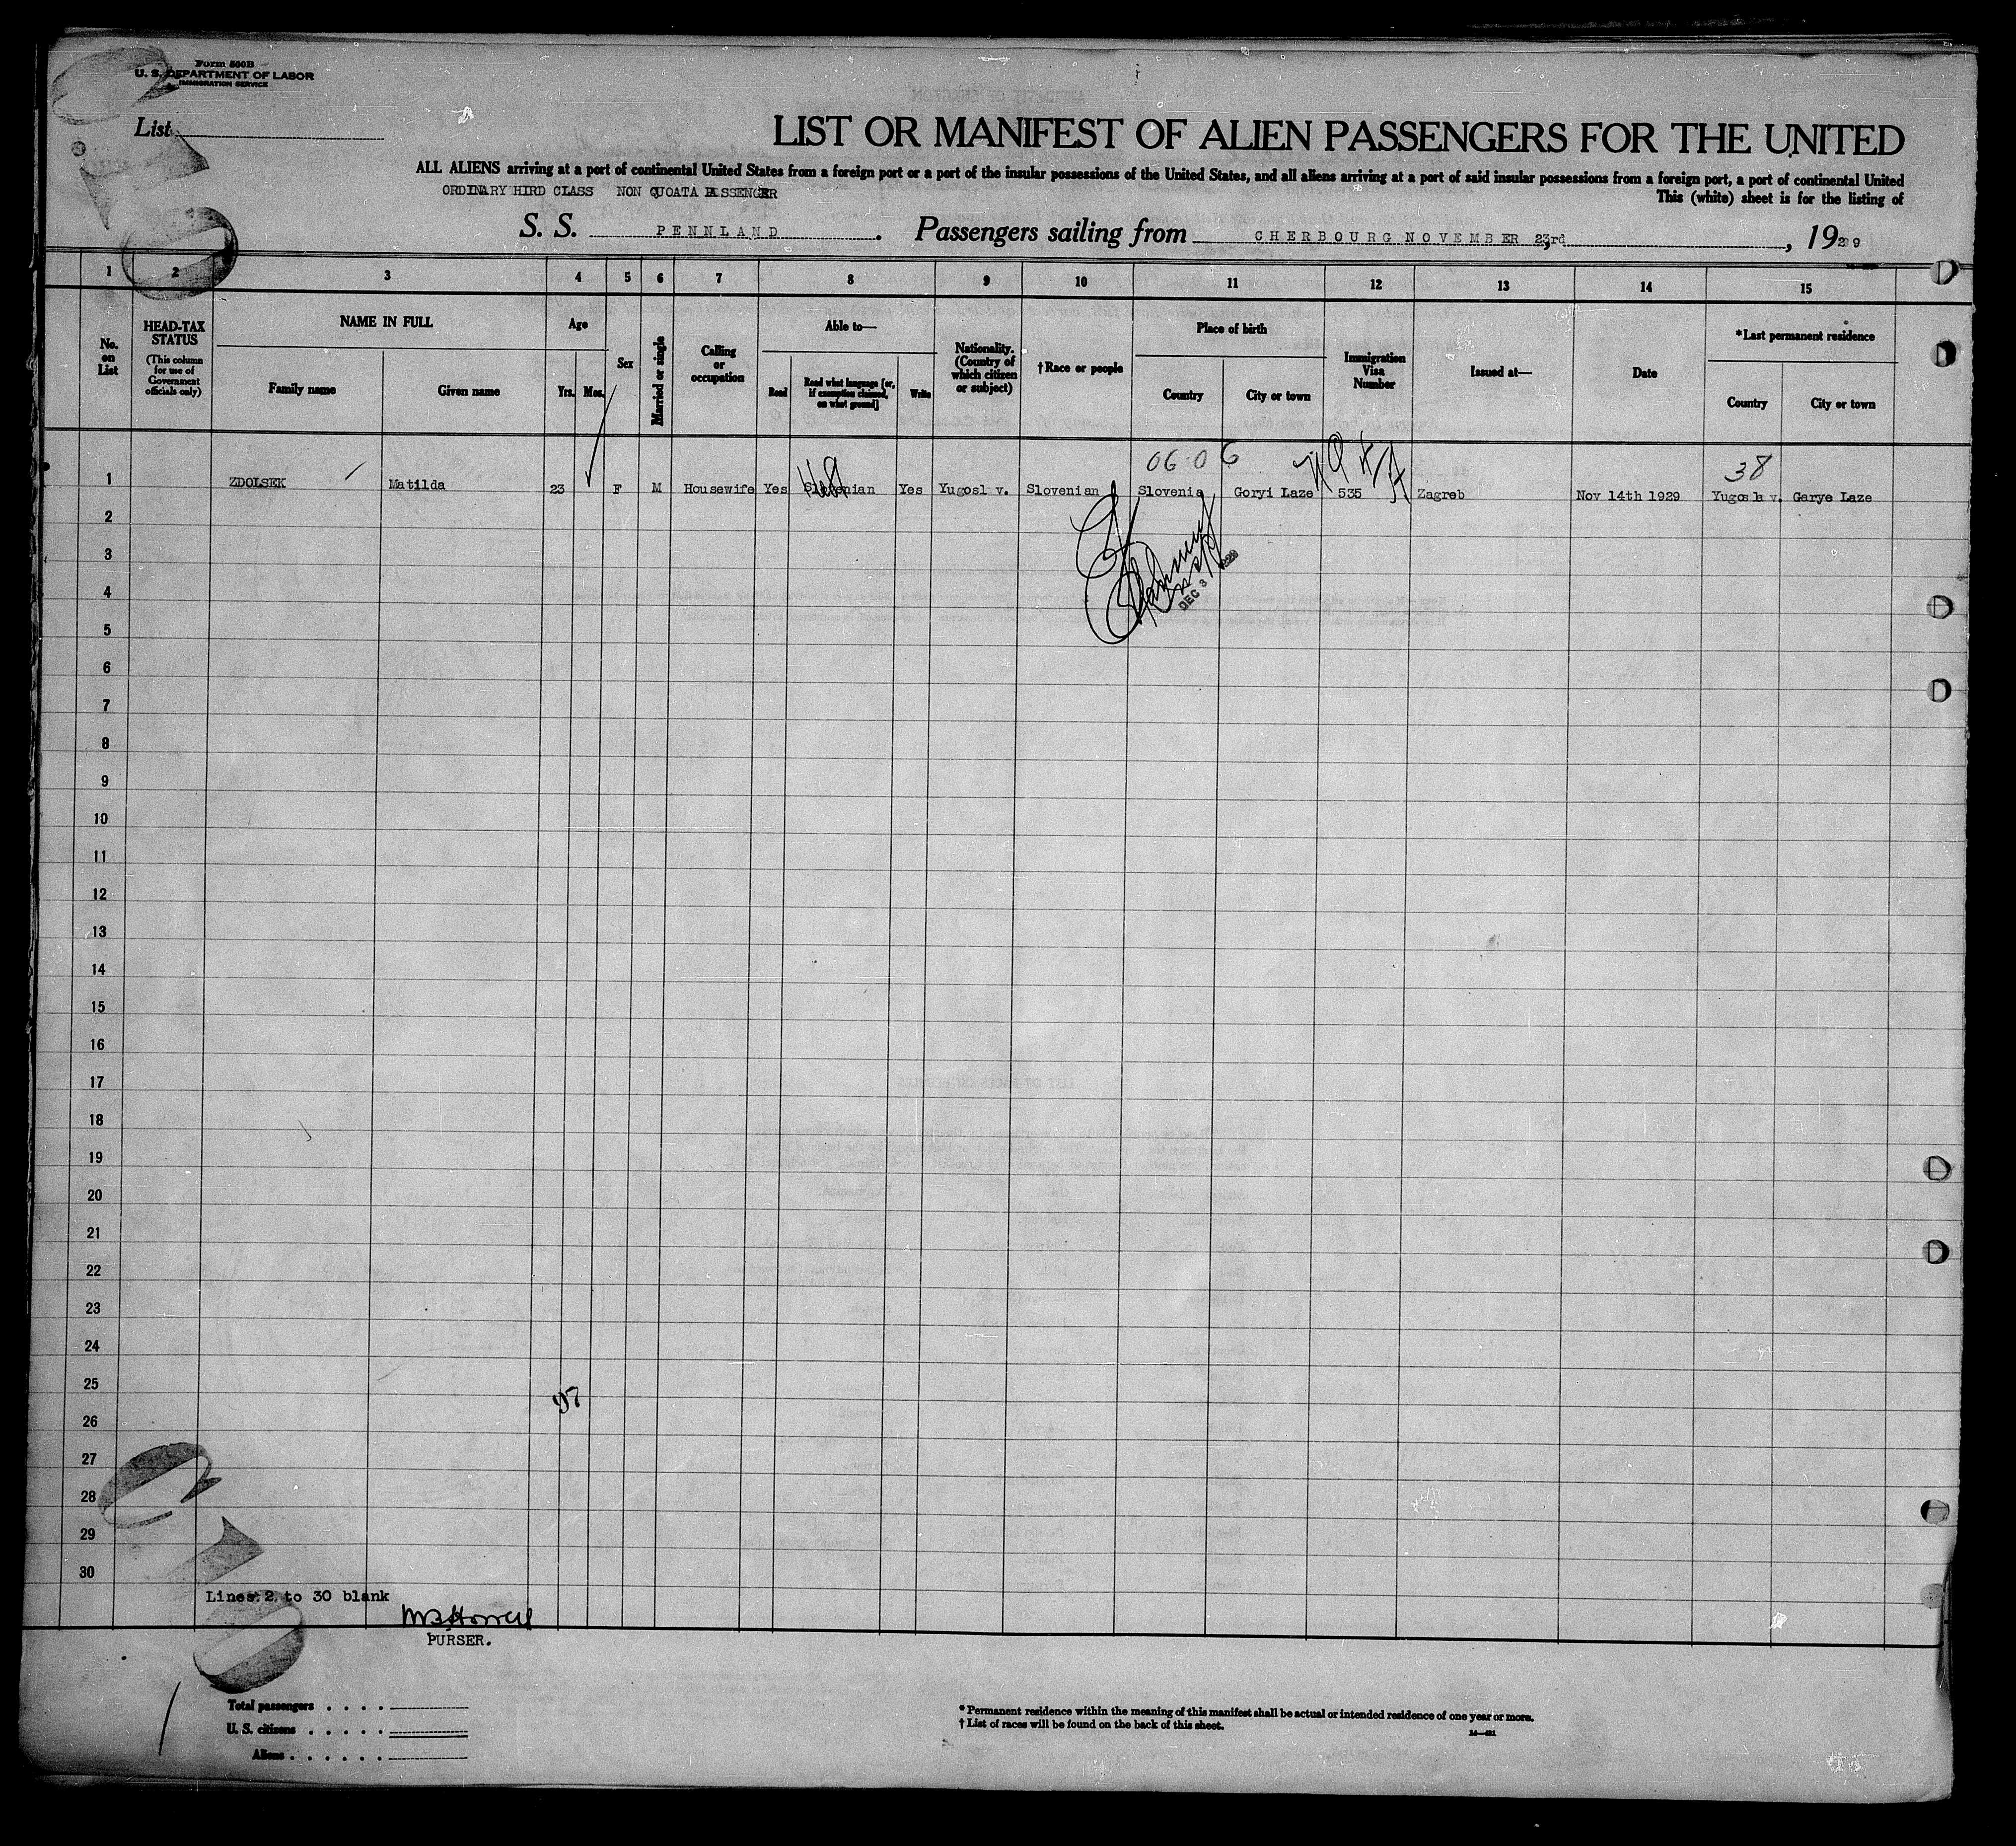 Form 500B
U. S. DEPARTMENT OF LABOR
IMMIGRATION SERVICE
List
LIST OR MANIFEST OF ALIEN PASSENGERS FOR THE UNITED
ALL ALIENS arriving at a port of continental United States from a foreign port or a port of the insular possessions of the United States, and all aliens arriving at a port of said insular possessions from a foreign port, a port of continental United
ORDINARY HIRD CLASS NON QUOATA PASSENGER
This (white) sheet is for the listing of
S. S. PENNLAND. Passengers sailing from CHERBOURG NOVEMBER 23rd, 1929
1 2 3 4 5 6 7 8 9 10 11 12 13 14 15
No. on List
HEAD-TAX STATUS
(This column for use of Government officials only)
NAME IN FULL
Family name
Given name
Age
Yrs. Mos.
Sex
Married or single
Calling or occupation
Able to—
Read
Read what language [or, if exemption claimed, on what ground]
Write
Nationality. (Country of which citizen or subject)
†Race or people
Place of birth
Country
City or town
Immigration Visa Number
Issued at—
Date
*Last permanent residence
Country
City or town
06 0 6
38
1 ZDOLSEK Matilda 23 F M Housewife Yes Slovenian Yes Yugosl v. Slovenian Slovenia Goryi Laze 535 Zagreb Nov 14th 1929 Yugosla v. Garye Laze
2
3
DEC 3 1929
4
5
6
7
8
9
10
11
12
13
14
15
16
17
18
19
20
21
22
23
24
25
97
26
27
28
29
30
Lines 2 to 30 blank
PURSER.
Total passengers
U. S. citizens
Aliens
* Permanent residence within the meaning of this manifest shall be actual or intended residence of one year or more.
† List of races will be found on the back of this sheet.